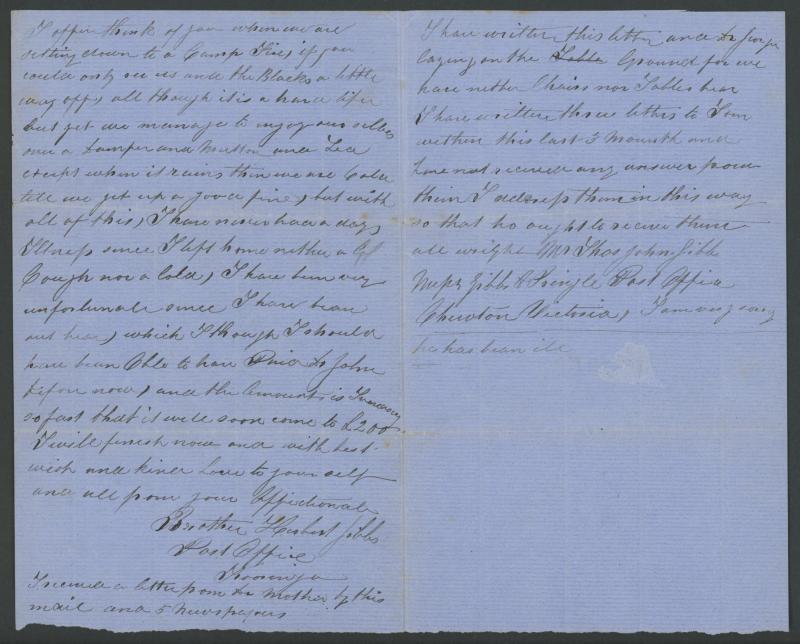 I often think of you when we are
setting down to a Camp Fire, if you
could only see us and the Blacks a little
way off, all though it is a hard life
but yet we manage to injoy our selles
over a Damper and Mutton and Tea
except when it rains then we are Cold
till we get up a good fire, but with
all of this, I have never had a day,
Illness since I left home nether a
Cough nor a Cold, I have been very
unfortunate since I have been
out hear, which I though I should
have been Able to have Paid Dr John
before now, and the Amount is
so fast that it will soon come to £200
I will finish now and with best
wish and kind Love to your self
and all from your Affectionate
Brother Herbert Gibbs
Post Office
I received a letter from Dr Mother by this
mail and 5 Newspapers
I have written this letter and Dr George
laying on the Table Ground for we
have nether Chairs nor Tables hear
I have written three letters to Tom
within this last 3 Mounth and
have not received any answer from
them I address them in this way
so that he ought to receive them
all wright Mr Thos John Gibbs
Messrs Gibbs & Pringle Post Office
Chewton Victoria, I am very sorry
he has been ill